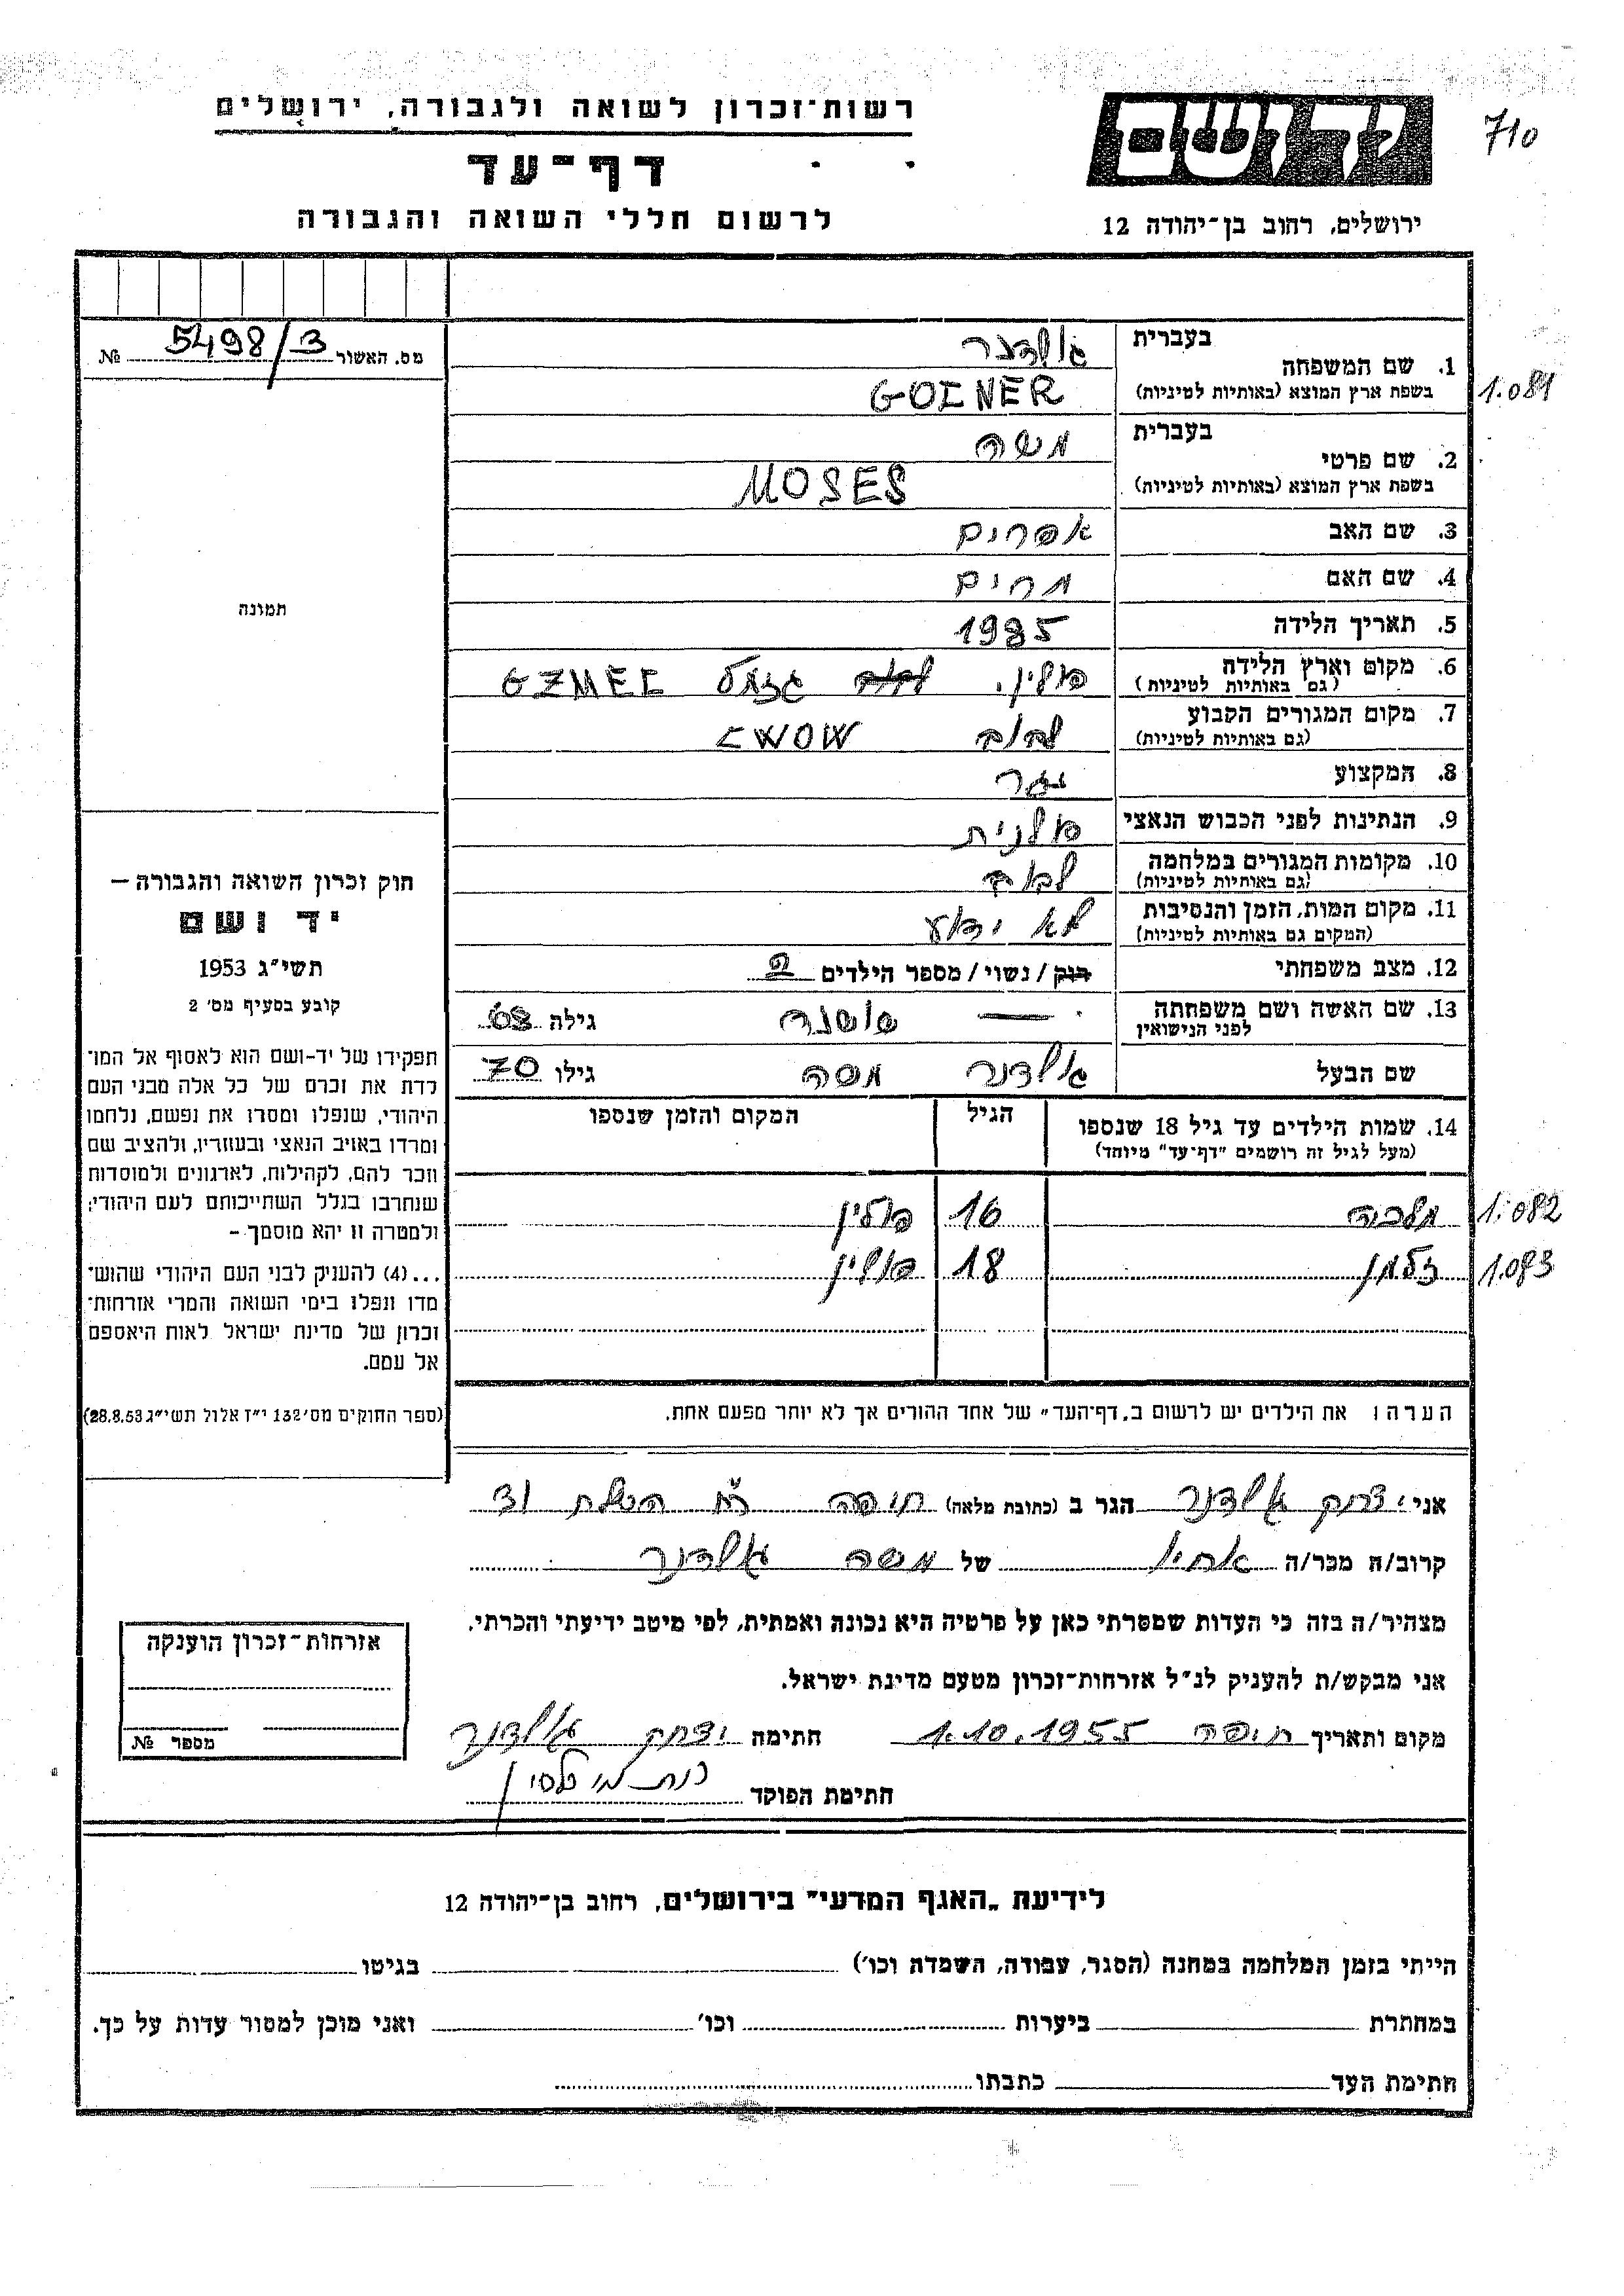 רשות-זכרון לשואה ולגבורה, ירושלים
ידושם
710
דף-עד
לרשום חללי השואה והגבורה
ירושלים, רחוב בן-יהודה 12
מס. האשור 5498/3 №
תמונה
1. שם המשפחה בעברית גולדנר
בשפת ארץ המוצא (באותיות לטיניות) GOLNER 1.081
2. שם פרטי בעברית משה
בשפת ארץ המוצא (באותיות לטיניות) MOSES
3. שם האב אפרים
4. שם האם מרים
5. תאריך הלידה 1985
6. מקום וארץ הלידה פולין. לבוב גזמל GZMEL
(גם באותיות לטיניות)
7. מקום המגורים הקבוע לבוב LWOW
(גם באותיות לטיניות)
8. המקצוע נגר
9. הנתינות לפני הכבוש הנאצי פולנית
10. מקומות המגורים במלחמה לבוב
(גם באותיות לטיניות)
11. מקום המות, הזמן והנסיבות לא ידוע
(המקום גם באותיות לטיניות)
12. מצב משפחתי רוק / נשוי / מספר הילדים 2
13. שם האשה ושם משפחתה שושנה גילה 68
לפני הנישואין
שם הבעל גולדנר משה גילו 70
14. שמות הילדים עד גיל 18 שנספו הגיל המקום והזמן שנספו
(מעל לגיל זה רושמים "דף-עד" מיוחד)
מלכה 16 פולין 1.082
זלמן 18 פולין 1.083
הערה: את הילדים יש לרשום ב„דף-העד" של אחד ההורים אך לא יותר מפעם אחת.
חוק זכרון השואה והגבורה –
יד ושם
תשי"ג 1953
קובע בסעיף מס' 2
תפקידו של יד-ושם הוא לאסוף אל המו־
לדת את זכרם של כל אלה מבני העם
היהודי, שנפלו ומסרו את נפשם, נלחמו
ומרדו באויב הנאצי ובעוזריו, ולהציב שם
וזכר להם, לקהילות, לארגונים ולמוסדות
שנחרבו בגלל השתייכותם לעם היהודי;
ולמטרה זו יהא מוסמך –
...(4) להעניק לבני העם היהודי שהוש־
מדו ונפלו בימי השואה והמרי אזרחות־
זכרון של מדינת ישראל לאות היאספם
אל עמם.
(ספר החוקים מס' 132 י"ז אלול תשי"ג 28.8.53)
אני יצחק גולדנר הגר ב (כתובת מלאה) חיפה
קרוב/ה מכר/ה אחיו של משה גולדנר
מצהיר/ה בזה כי העדות שמסרתי כאן על פרטיה היא נכונה ואמתית, לפי מיטב ידיעתי והכרתי.
אני מבקש/ת להעניק לנ"ל אזרחות-זכרון מטעם מדינת ישראל.
מקום ותאריך חיפה 1.10.1955 חתימה יצחק גולדנר
חתימת הפוקד
אזרחות-זכרון הוענקה
מספר №
לידיעת „האגף המדעי" בירושלים, רחוב בן-יהודה 12
הייתי בזמן המלחמה במחנה (הסגר, עבודה, השמדה וכו') בגיטו
במחתרת ביערות וכו' ואני מוכן למסור עדות על כך.
חתימת העד כתבתו